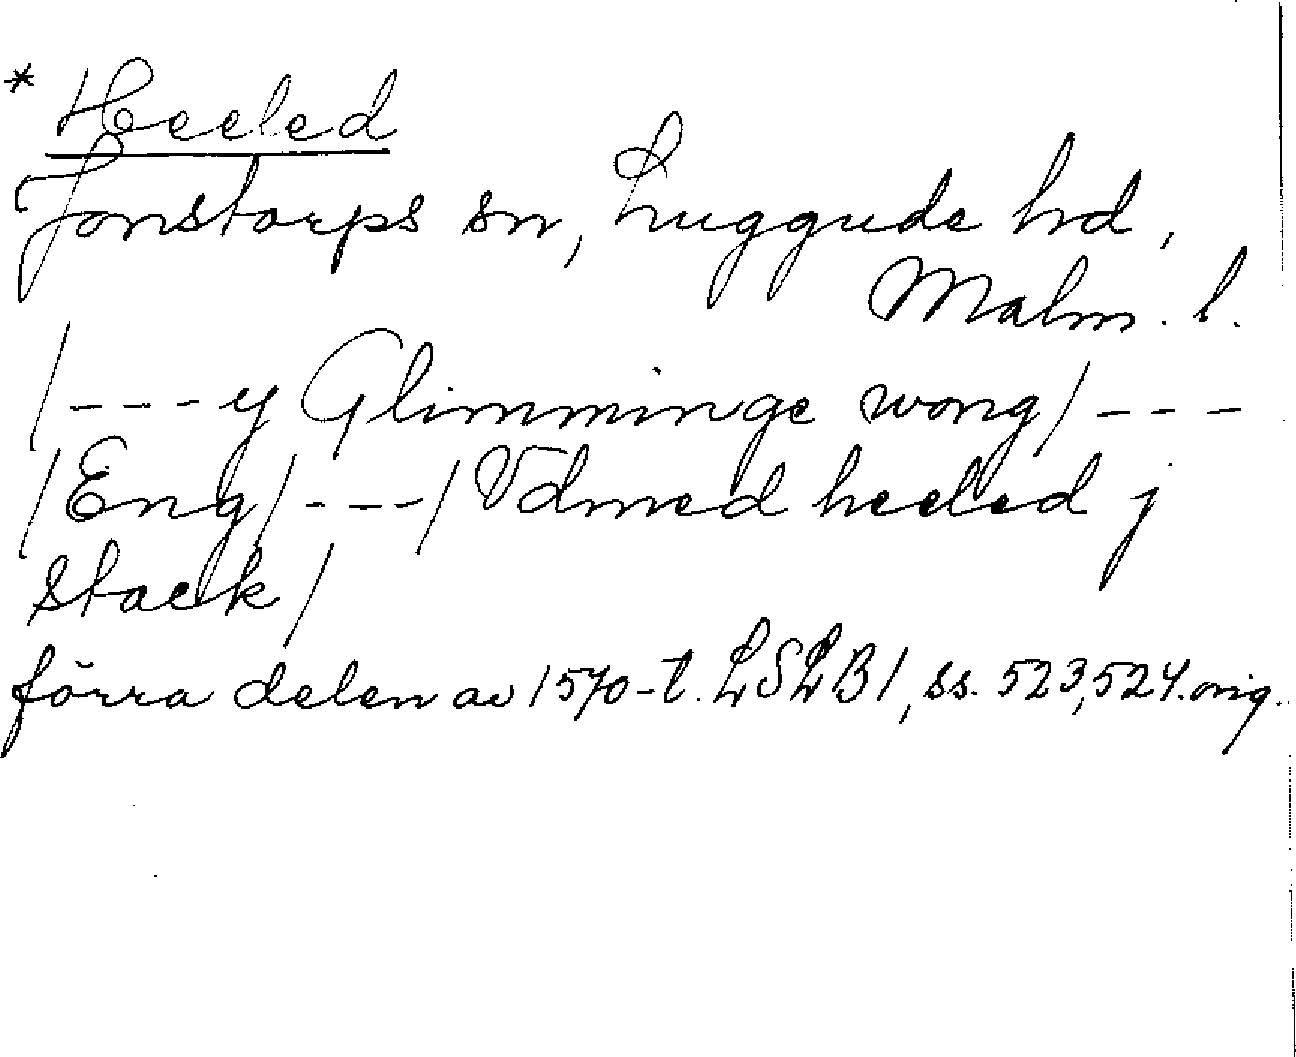 * Heeled
Jonstorps sn, Luggude hd,
Malm. l.
/---y Glimminge wong/---
/Eng/---/Vdmed heeled j
stack/
förra delen av 1570-t. LSLB1, ss. 523,524. orig.